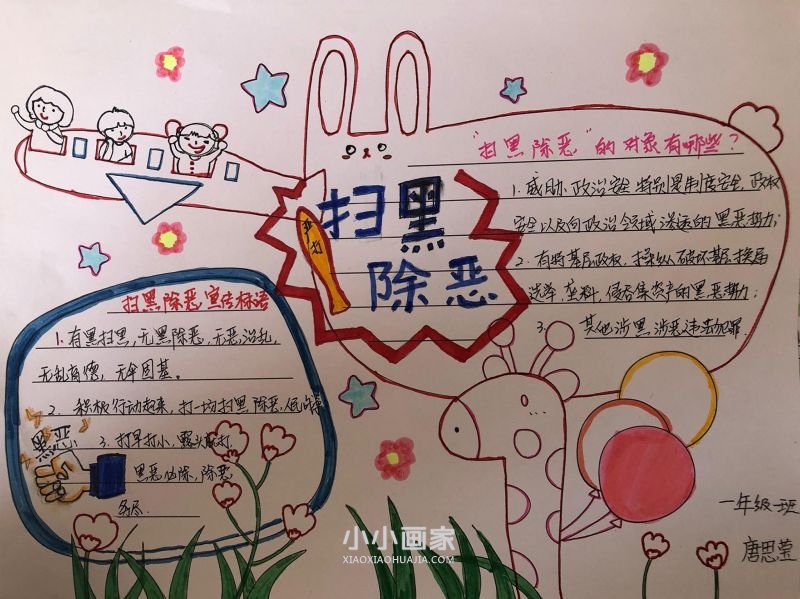 "扫黑除恶"的对象有哪些?
1. 威胁政治安全特别是制度安全,政权
安全以及向政治领域渗透的黑恶势力;
2. 有持基层政权,操纵破坏基层换届
选举,垄料,侵吞集资产的黑恶势力;
3. 其他涉黑涉恶违法犯罪.
扫黑
除恶
严打
扫黑除恶宣传标语
1. 有黑扫黑,无黑除恶,无恶治乱,
2. 积极行动起来,打一场扫黑除恶
3. 打早打小,露头就打.
黑恶必除,除恶
务尽.
黑恶
一年级一班
唐思莹
小小画家
XIAOXIAOHUAJIA.COM